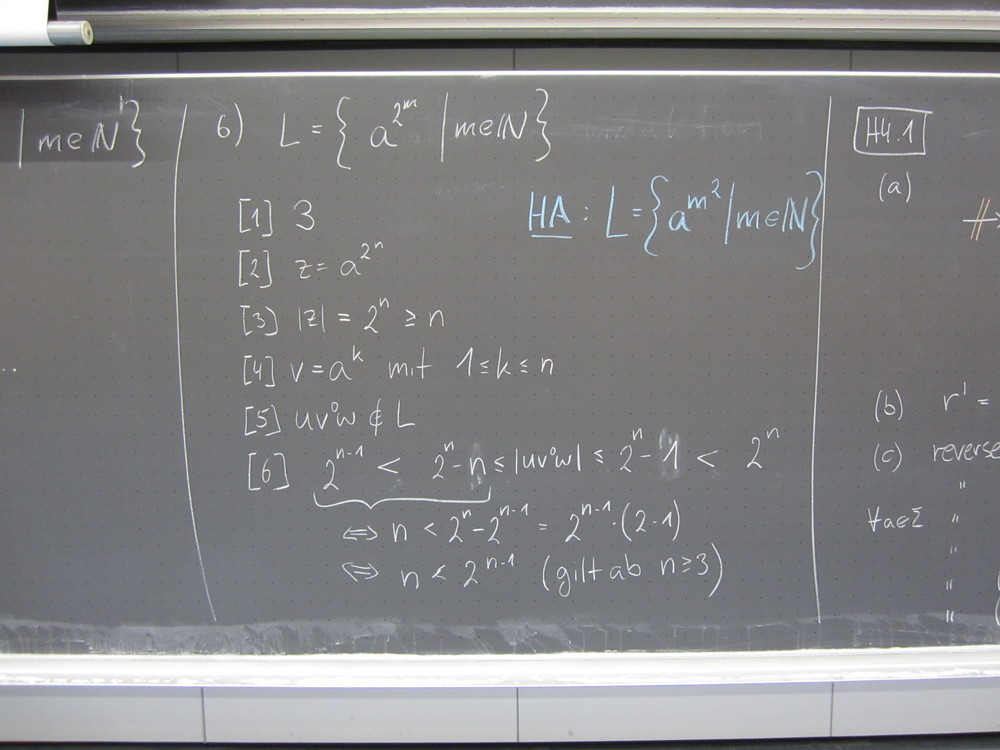 | m∈ℕ }
6) L = { a^{2^m} | m∈ℕ }
HA : L = { a^{m^2} | m∈ℕ }
[1] 3
[2] z = a^{2^n}
[3] |z| = 2^n ≥ n
[4] v = a^k mit 1 ≤ k ≤ n
[5] uv^0w ∉ L
[6] 2^{n-1} < 2^n - n ≤ |uv^0w| ≤ 2^n - 1 < 2^n
⇔ n < 2^n - 2^{n-1} = 2^{n-1}·(2-1)
⇔ n < 2^{n-1} (gilt ab n≥3)
...
H4.1
(a)
(b) r' =
(c) reverse
"
∀a∈Σ "
"
"
"